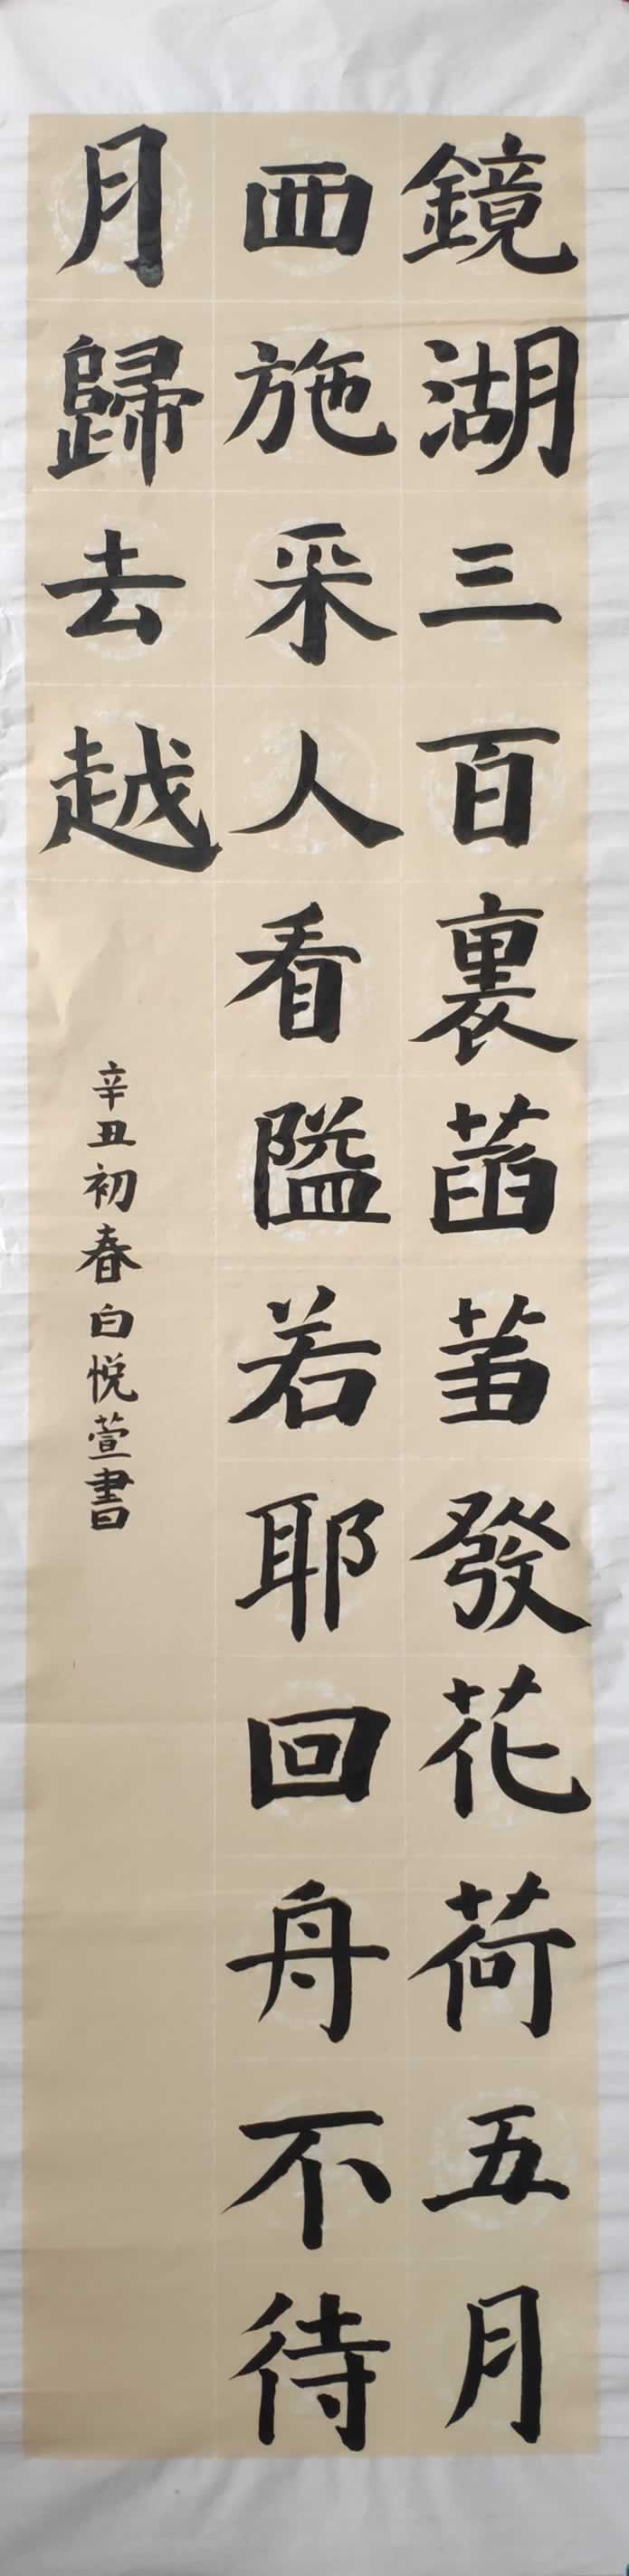 鏡湖三百裏菡萏發花荷五月
西施采人看隘若耶回舟不待
月歸去越
辛丑初春白悦萱書